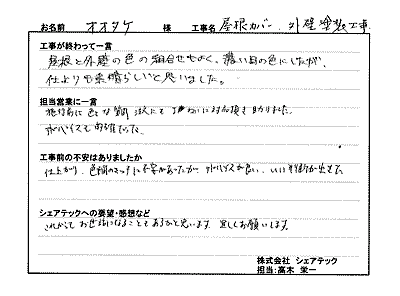 お名前 オオタケ 様 工事名 屋根カバー、外壁塗装工事
工事が終わって一言
屋根と外壁の色の組合せもよく、濃い目の色にしたが、
仕上りも素晴らしいと思いました。
担当営業に一言
色々な質問 ていねいに対応頂き助かりました。
アドバイスも
工事前の不安はありましたか
仕上がり、色調のマッチに不安があったが アドバイスが良い、
シェアテックへの要望・感想など
これからもお世話になることもあるかと思います。宜しくお願いします。
株式会社 シェアテック
担当:高木 栄一